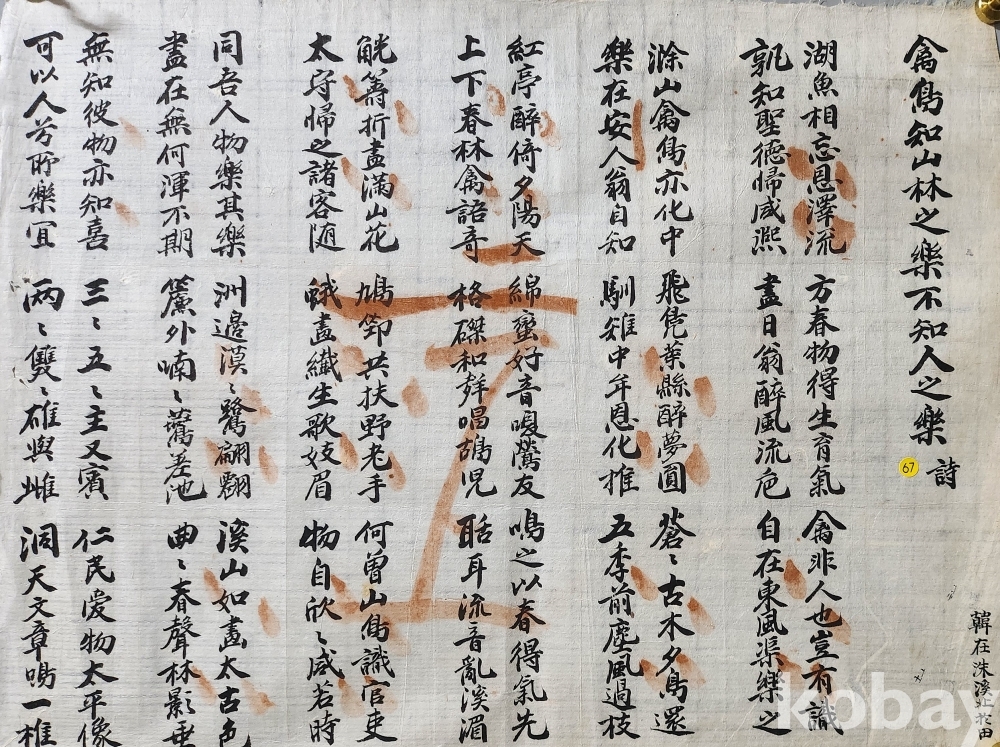 禽鳥知山林之樂不知人之樂 詩
湖魚相忘恩澤流 方春物得生育氣 禽非人也豈有識
孰知聖德帰咸熙 盡日翁醉風流卮 自在東風渠樂之
滁山禽鳥亦化中 飛凫葉縣醉夢圓 蒼〻古木夕鳥還
樂在安人翁自知 馴雉中牟恩化推 五季前塵風過枝
紅亭醉倚夕陽天 綿蠻好音嚶鶯友 鳴之以春得氣先
上下春林禽語奇 格磔和群唱鷓児 聒耳流音亂溪湄
觥籌折盡滿山花 鳩笻共扶野老手 何曾山鳥識官吏
太守帰之諸客随 蛾畫纖生歌妓眉 物自欣〻咸若時
同吾人物樂其樂 洲邊漠〻鷺翩翾 溪山如畫太古色
盡在無何渾不期 簾外喃〻鶯差池 曲〻春聲林影垂
無知彼物亦知喜 三〻五〻主又賓 仁民愛物太平像
可以人兮所樂宜 兩〻雙〻雄與雌 洞天文章鳴一
67
韓在洙溪
kobay